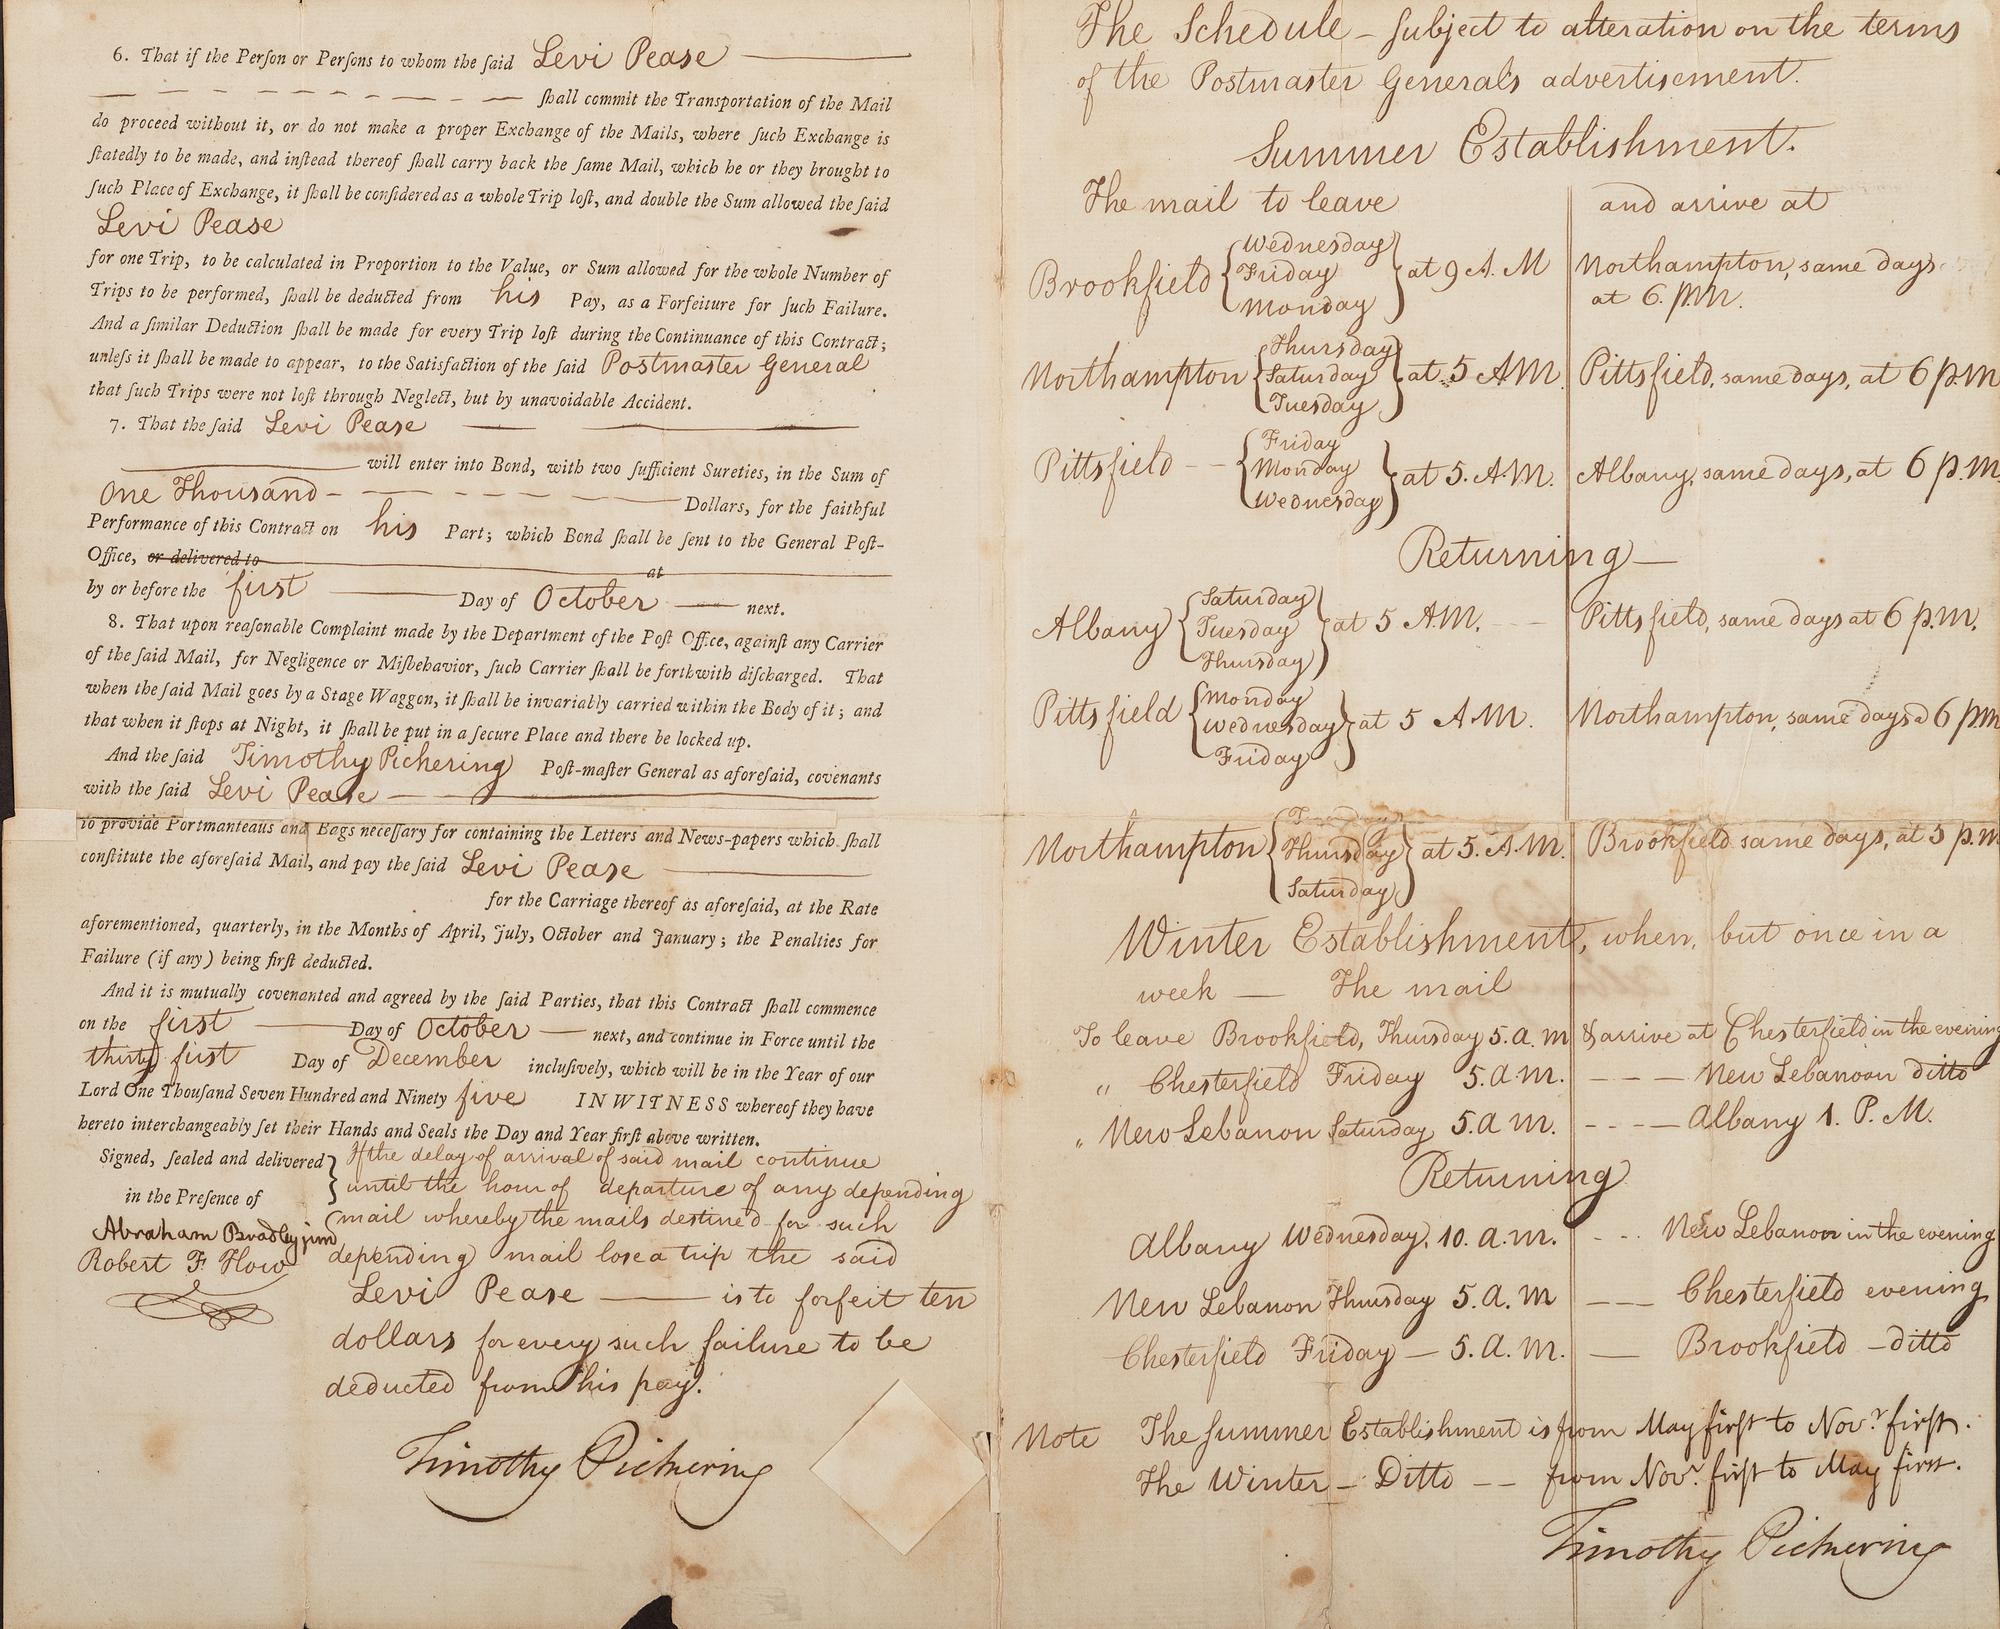 6. That if the Perſon or Perſons to whom the ſaid Levi Pease
ſhall commit the Transportation of the Mail
do proceed without it, or do not make a proper Exchange of the Mails, where ſuch Exchange is
ſtatedly to be made, and inſtead thereof ſhall carry back the ſame Mail, which he or they brought to
ſuch Place of Exchange, it ſhall be conſidered as a whole Trip loſt, and double the Sum allowed the ſaid
Levi Pease
for one Trip, to be calculated in Proportion to the Value, or Sum allowed for the whole Number of
Trips to be performed, ſhall be deducted from his Pay, as a Forfeiture for ſuch Failure.
And a ſimilar Deduction ſhall be made for every Trip loſt during the Continuance of this Contract;
unleſs it ſhall be made to appear, to the Satisfaction of the ſaid Postmaster General
that ſuch Trips were not loſt through Neglect, but by unavoidable Accident.
7. That the ſaid Levi Pease
will enter into Bond, with two ſufficient Sureties, in the Sum of
One Thousand Dollars, for the faithful
Performance of this Contract on his Part; which Bond ſhall be ſent to the General Poſt-
Office, or delivered to
at
by or before the first Day of October next.
8. That upon reaſonable Complaint made by the Department of the Poſt Office, againſt any Carrier
of the ſaid Mail, for Negligence or Miſbehavior, ſuch Carrier ſhall be forthwith diſcharged. That
when the ſaid Mail goes by a Stage Waggon, it ſhall be invariably carried within the Body of it; and
that when it ſtops at Night, it ſhall be put in a ſecure Place and there be locked up.
And the ſaid Timothy Pickering Poſt-maſter General as aforeſaid, covenants
with the ſaid Levi Pease
to provide Portmanteaus and Bags neceſſary for containing the Letters and News-papers which ſhall
conſtitute the aforeſaid Mail, and pay the ſaid Levi Pease
for the Carriage thereof as aforeſaid, at the Rate
aforementioned, quarterly, in the Months of April, July, October and January; the Penalties for
Failure (if any) being firſt deducted.
And it is mutually covenanted and agreed by the ſaid Parties, that this Contract ſhall commence
on the first Day of October next, and continue in Force until the
thirty first Day of December incluſively, which will be in the Year of our
Lord One Thouſand Seven Hundred and Ninety five IN WITNESS whereof they have
hereto interchangeably ſet their Hands and Seals the Day and Year firſt above written.
Signed, ſealed and delivered
in the Preſence of
Abraham Bradley jun
Robert F How
If the delay of arrival of said mail continue
until the hour of departure of any depending
mail whereby the mails destined for such
depending mail lose a trip the said
Levi Pease is to forfeit ten
dollars for every such failure to be
deducted from his pay.
Timothy Pickering
The Schedule – subject to alteration on the terms
of the Postmaster General's advertisement.
Summer Establishment.
The mail to leave and arrive at
Brookfield { Wednesday Friday Monday } at 9 A.M Northampton, same days
at 6. P.M.
Northampton { Thursday Saturday Tuesday } at 5 A.M. Pittsfield, same days, at 6 p.m
Pittsfield -- { Friday Monday Wednesday } at 5. A.M. Albany, same days, at 6 p.m
Returning —
Albany { Saturday Tuesday Thursday } at 5 A.M. Pittsfield, same days at 6 p.m.
Pittsfield { Monday Wednesday Friday } at 5 A.M. Northampton, same days a 6 p.m
Northampton { Tuesday Thursday Saturday } at 5. A.M. Brookfield same days, at 5 p.m
Winter Establishment, when, but once in a
week — The mail
To leave Brookfield, Thursday 5. a. m & arrive at Chesterfield in the evening
" Chesterfield Friday 5. a. m. --- New Lebanon ditto
" New Lebanon Saturday 5. a m. ---- Albany 1. P. M.
Returning
Albany Wednesday, 10. a. m. --- New Lebanon in the evening
New Lebanon Thursday 5. a. m --- Chesterfield evening
Chesterfield Friday — 5. a. m. — Brookfield – ditto
Note The Summer Establishment is from May first to Novr. first.
The Winter – Ditto -- from Novr. first to May first.
Timothy Pickering